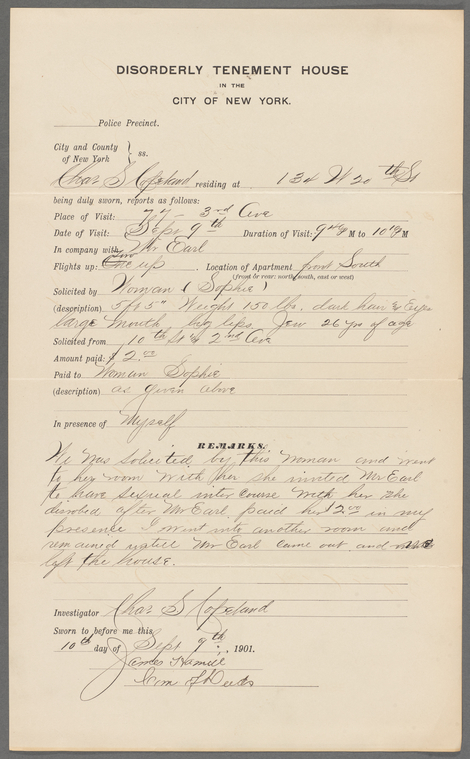 DISORDERLY TENEMENT HOUSE
IN THE
CITY OF NEW YORK.
Police Precinct.
City and County
of New York } ss.
Chas S Copeland residing at 134 W 20th St
being duly sworn, reports as follows:
Place of Visit: 77 - 3rd Ave
Date of Visit: Sept 9th Duration of Visit: 9 M to 10 M
In company with Mr Earl
Flights up: two up, Location of Apartment front South
(front or rear: north, south, east or west)
Solicited by Woman (Sophie)
(description) 5 ft 5" Weight 150 lbs. dark hair & Eyes
large mouth big lips. Jew 26 yrs of age
Solicited from 10th St & 2nd Ave
Amount paid: $2.00
Paid to Woman Sophie
(description) as given above
In presence of Myself
REMARKS.
We was solicited by this woman and went
to her room with her she invited Mr Earl
to have sexual inter course with her she
disrobed after Mr Earl paid her $2.00 in my
presence I went into another room and
remained until Mr Earl came out and we
left the house.
Investigator Chas S Copeland
Sworn to before me this
10th day of Sept 9th, 1901.
James Hamill